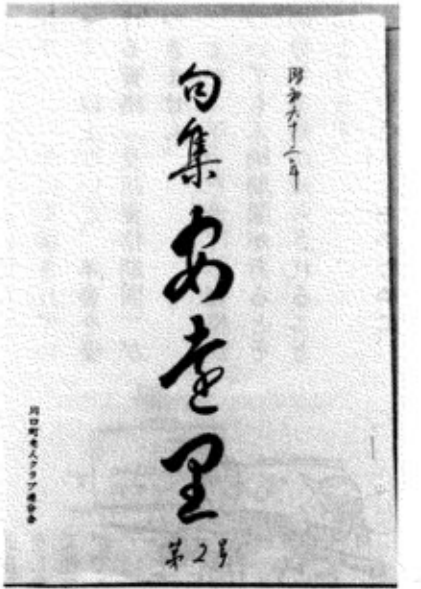 昭和六十三年
句集 安遠里
第2号
川口町老人クラブ連合会